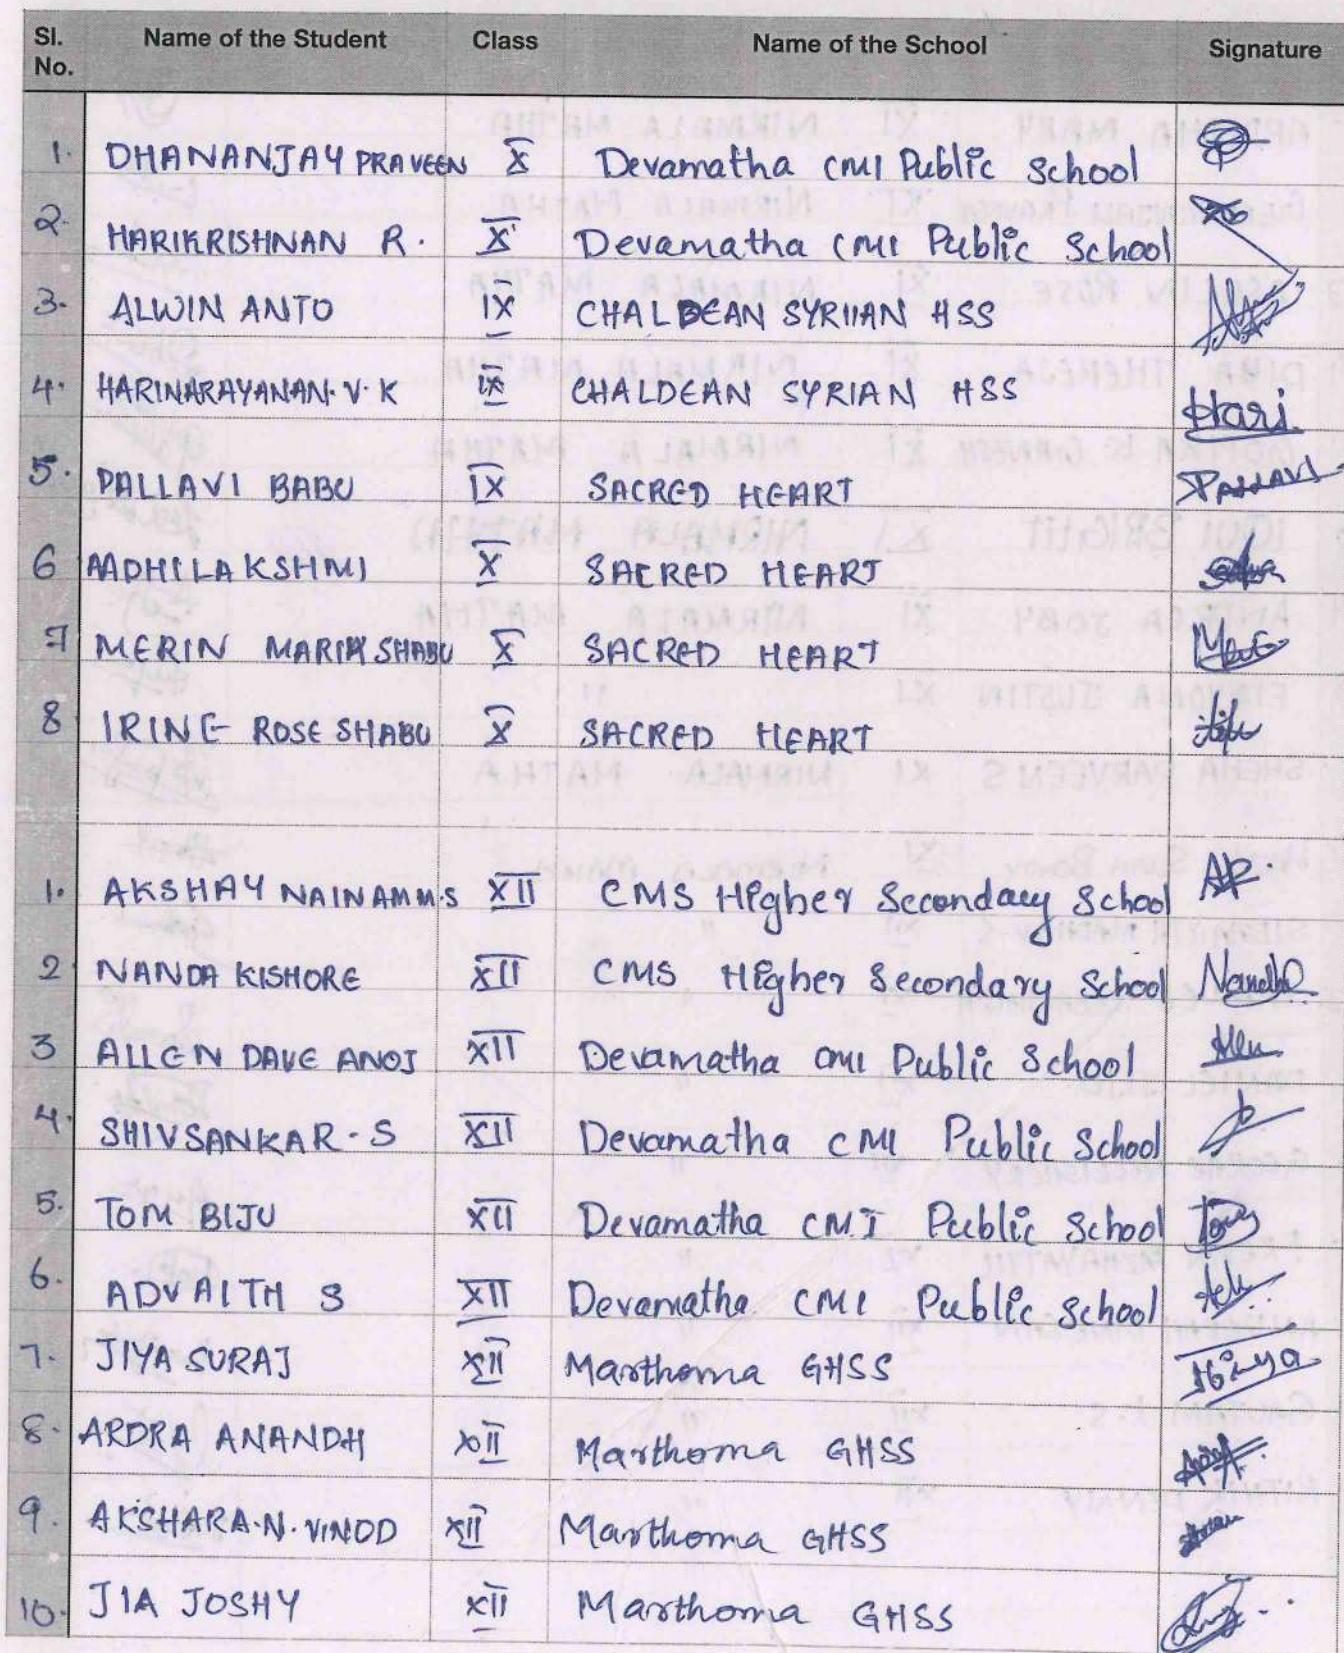 Sl. No. Name of the Student Class Name of the School Signature
1. DHANANJAY PRAVEEN X Devamatha CMI Public School
2. HARIKRISHNAN R. X Devamatha CMI Public School
3. ALWIN ANTO IX CHALDEAN SYRIIAN HSS
4. HARINARAYANAN. V. K IX CHALDEAN SYRIAN HSS Hari
5. PALLAVI BABU IX SACRED HEART
6 AADHILAKSHMI X SACRED HEART
7 MERIN MARIA SHABU X SACRED HEART
8 IRINE ROSE SHABU X SACRED HEART
1. AKSHAY NAINAMM.S XII CMS Higher Secondary School
2 NANDA KISHORE XII CMS Higher Secondary School
3 ALLEN DAVE ANOJ XII Devamatha CMI Public School
4. SHIVSANKAR. S XII Devamatha CMI Public School
5. TOM BIJU XII Devamatha CMI Public School
6. ADVAITH S XII Devamatha CMI Public School
7. JIYA SURAJ XII Marthoma GHSS
8. ARDRA ANANDH XII Marthoma GHSS
9. AKSHARA. N. VINOD XII Marthoma GHSS
10. JIA JOSHY XII Marthoma GHSS